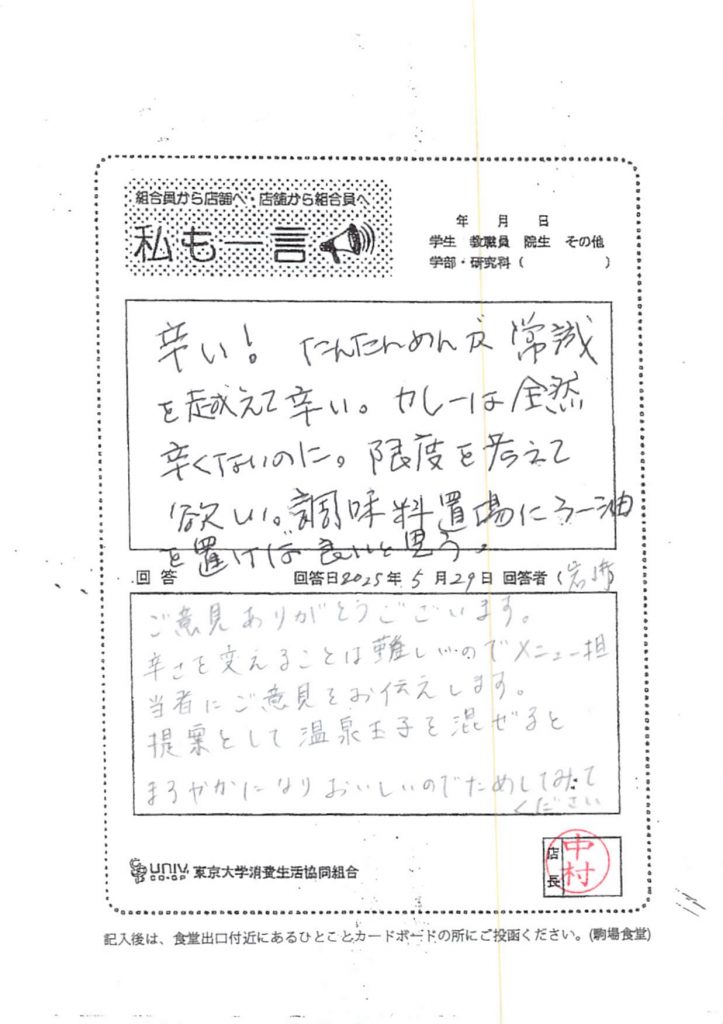 組合員から店舗へ・店舗から組合員へ
私も一言
年 月 日
学生 教職員 院生 その他
学部・研究科 ( )
辛い! たんたんめんが常識
を越えて辛い。カレーは全然
辛くないのに。限度を考えて
欲しい。調味料置場にラー油
を置けば良いと思う。
回答 回答日2025年5月29日 回答者 (岩崎)
ご意見ありがとうございます。
辛さを変えることは難しいのでメニュー担
当者にご意見をお伝えします。
提案として温泉玉子を混ぜると
まろやかになりおいしいのでためしてみて
ください
UNIV. CO-OP 東京大学消費生活協同組合
店長 中村
記入後は、食堂出口付近にあるひとことカードボードの所にご投函ください。(駒場食堂)